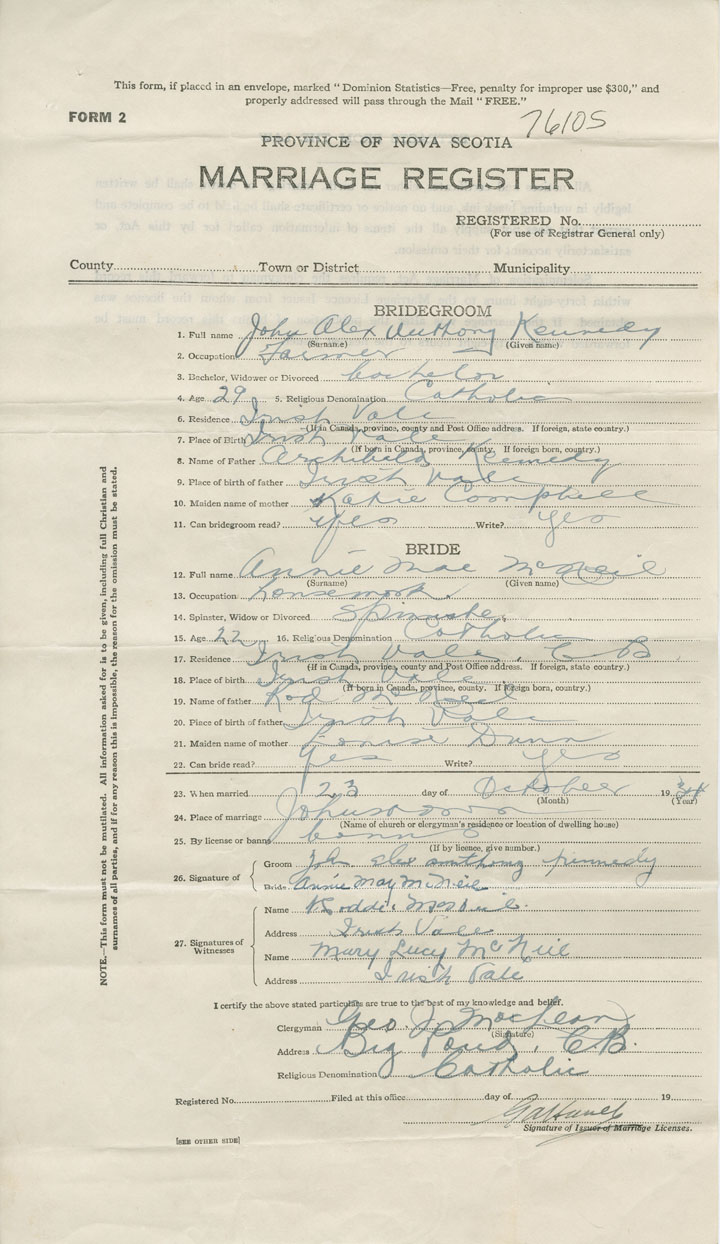 This form, if placed in an envelope, marked "Dominion Statistics—Free, penalty for improper use $300," and
properly addressed will pass through the Mail "FREE."
FORM 2
76105
PROVINCE OF NOVA SCOTIA
MARRIAGE REGISTER
REGISTERED No.
(For use of Registrar General only)
County Town or District Municipality
BRIDEGROOM
1. Full name John Alex Anthony Kennedy
(Surname) (Given name)
2. Occupation Farmer
3. Bachelor, Widower or Divorced bachelor
4. Age 29 5. Religious Denomination Catholic
6. Residence Irish Vale
(If in Canada, province, county and Post Office address. If foreign, state country.)
7. Place of Birth Irish Vale
(If born in Canada, province, county. If foreign born, country.)
8. Name of Father Archibald Kennedy
9. Place of birth of father Irish Vale
10. Maiden name of mother Katie Campbell
11. Can bridegroom read? yes Write? yes
BRIDE
12. Full name Annie Mae McNeil
(Surname) (Given name)
13. Occupation housework
14. Spinster, Widow or Divorced Spinster
15. Age 22 16. Religious Denomination Catholic
17. Residence Irish Vale, C B
(If in Canada, province, county and Post Office address. If foreign, state country.)
18. Place of birth Irish Vale
(If born in Canada, province, county. If foreign born, country.)
19. Name of father Rod McNeil
20. Place of birth of father Irish Vale
21. Maiden name of mother Louise Dunn
22. Can bride read? yes Write? yes
23. When married 23 day of October 19 34
(Month) (Year)
24. Place of marriage Johnstown
(Name of church or clergyman's residence or location of dwelling house)
25. By license or banns banns
(If by licence, give number.)
26. Signature of
Groom John alex anthony kennedy
Bride Annie May McNeil
27. Signatures of Witnesses
Name Roddie McNeil
Address Irish Vale
Name Mary Lucy McNeil
Address Irish Vale
I certify the above stated particulars are true to the best of my knowledge and belief.
Clergyman Geo J. MacLean
(Signature)
Address Big Pond, C B.
Religious Denomination Catholic
Registered No. Filed at this office day of 19
Signature of Issuer of Marriage Licenses.
[SEE OTHER SIDE]
NOTE.—This form must not be mutilated. All information asked for is to be given, including full Christian and
surnames of all parties, and if for any reason this is impossible, the reason for the omission must be stated.